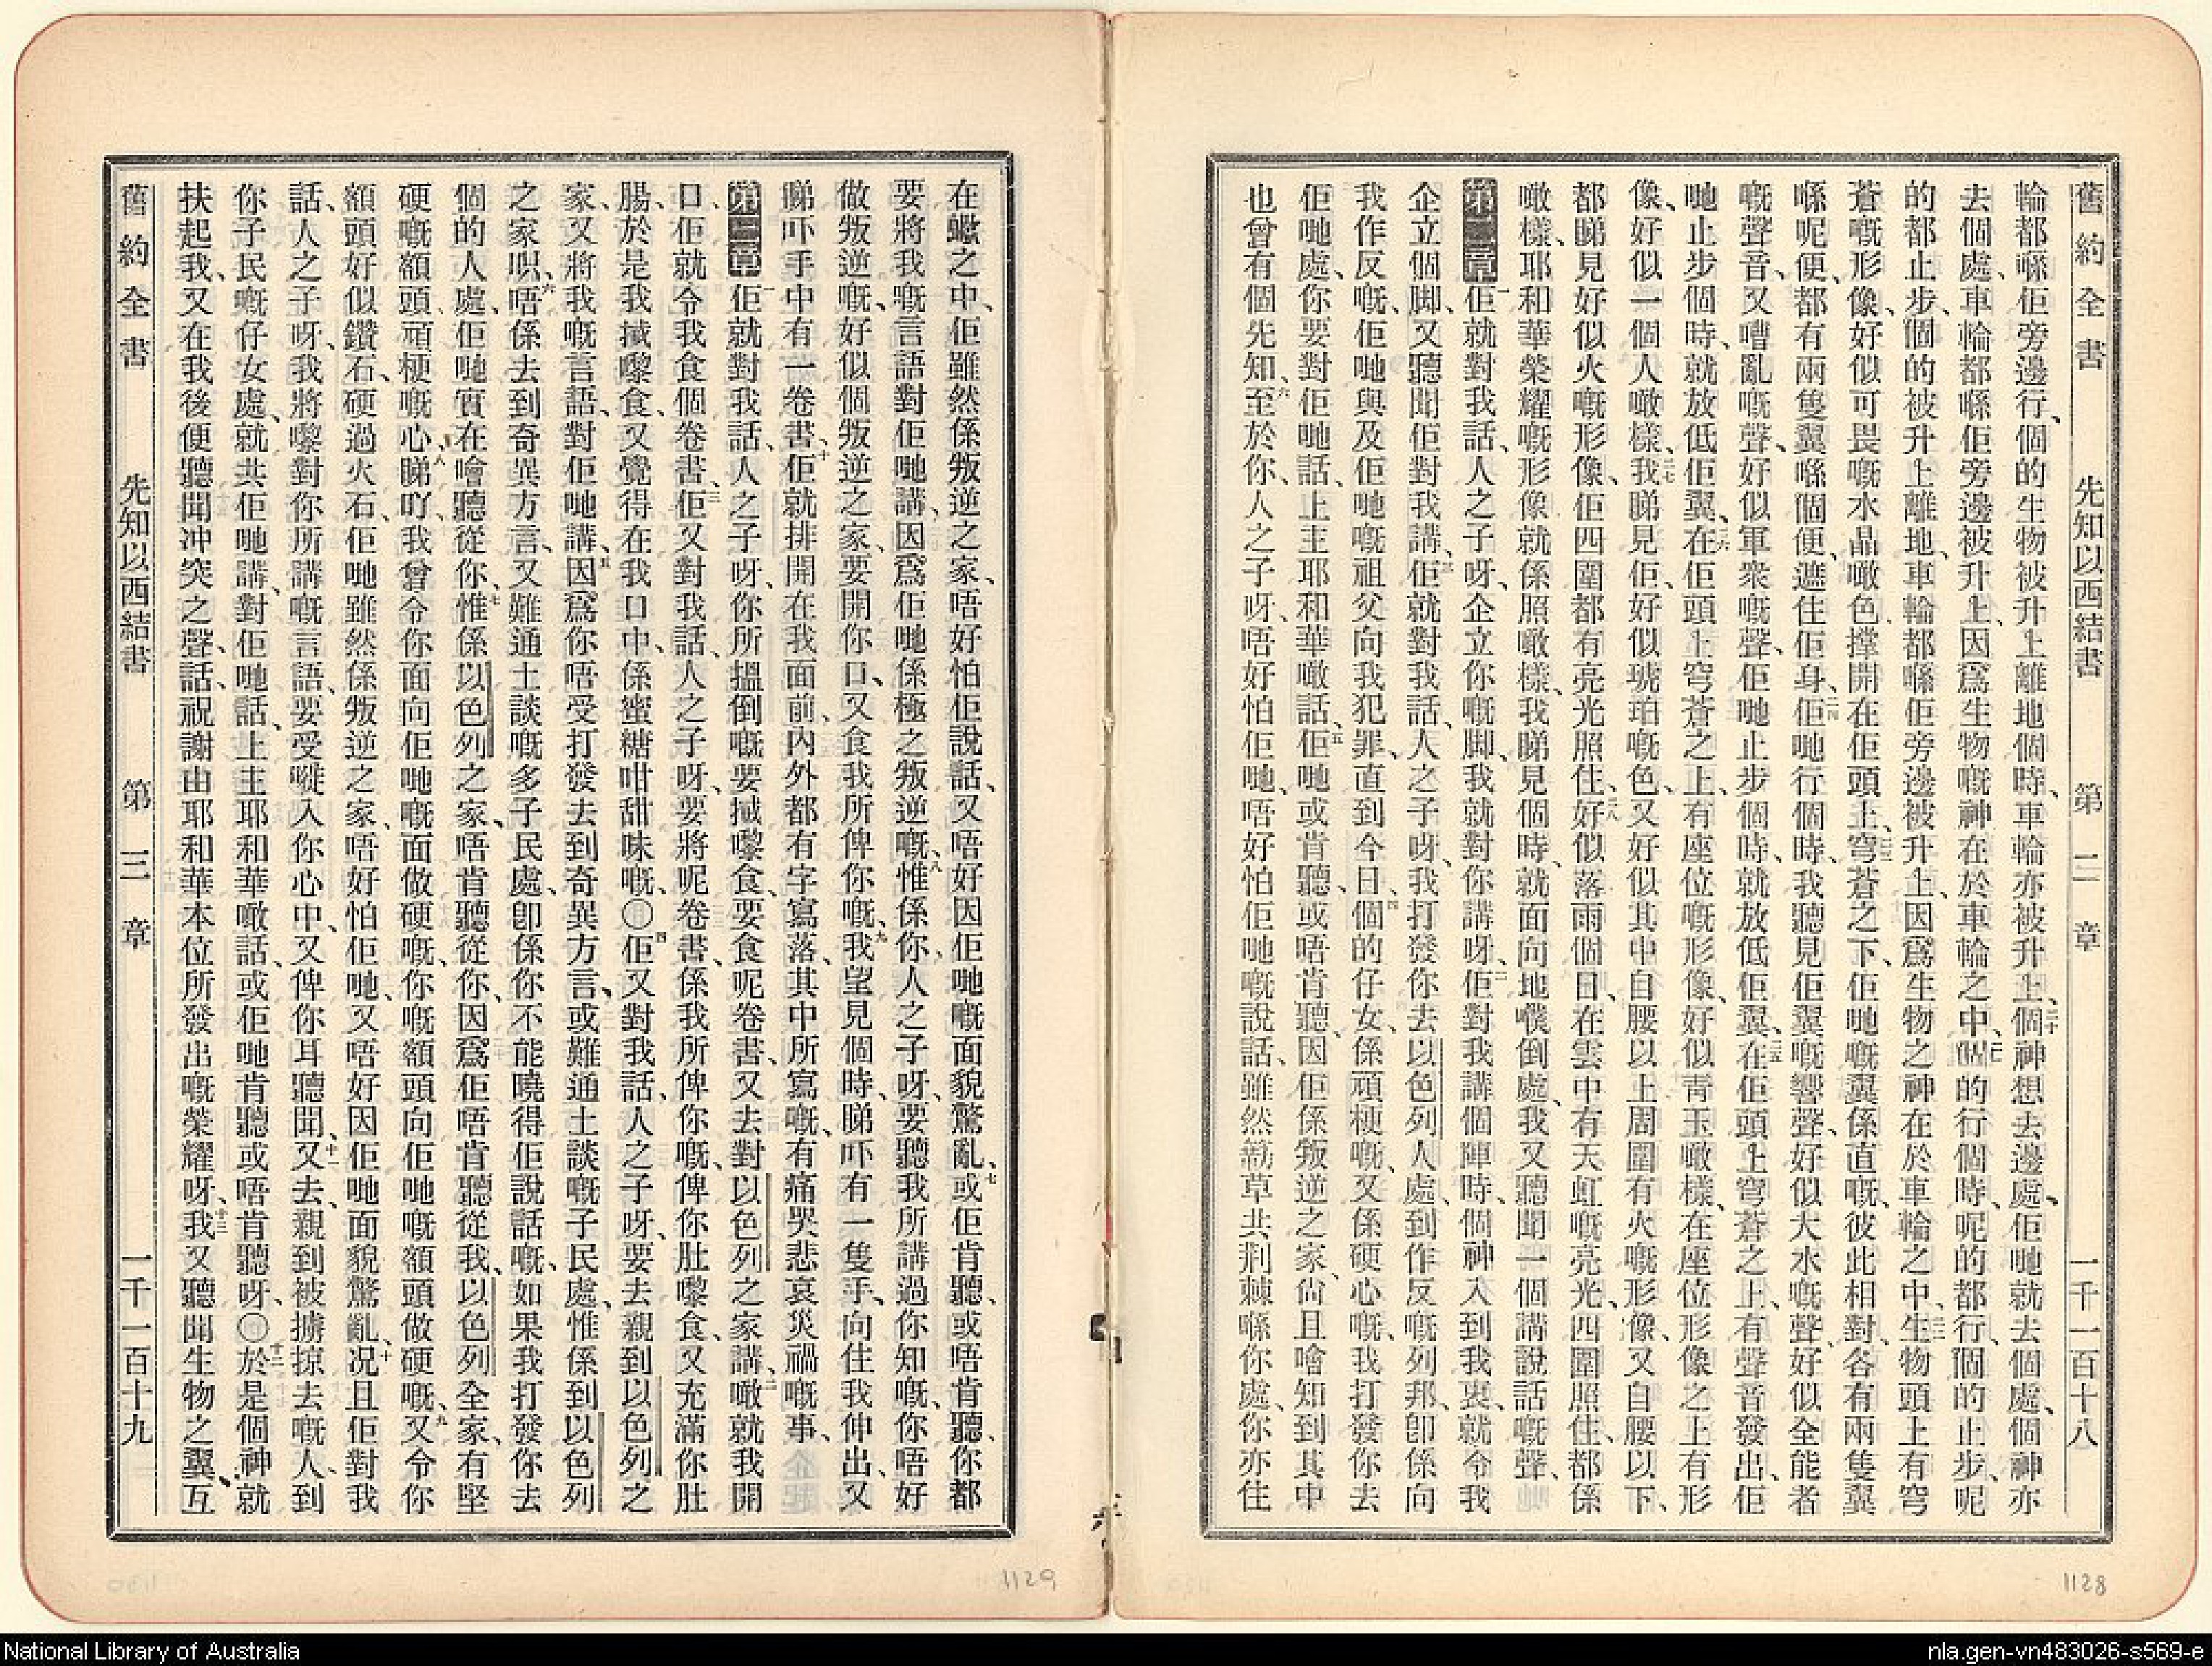 舊約全書　先知以西結書　第二章　一千一百十八
輪都喺佢旁邊行、個的生物被升上離地個時、車輪亦被升上、二十個神想去邊處、佢哋就去個處、個神亦
去個處、車輪都喺佢旁邊被升上、因爲生物嘅神在於車輪之中、個的行個時、呢的都行、個的止步、呢
的都止步、個的被升上離地、車輪都喺佢旁邊被升上、因爲生物之神在於車輪之中、生物頭上有穹
蒼嘅形像、好似可畏嘅水晶噉色、撑開在佢頭上、穹蒼之下、佢哋嘅翼係直嘅、彼此相對、各有兩隻翼
喺呢便、都有兩隻翼喺個便、遮住佢身、二四佢哋行個時、我聽見佢翼嘅響聲、好似大水嘅聲、好似全能者
嘅聲音、又嘈亂嘅聲、好似軍衆嘅聲、佢哋止步個時、就放低佢翼、二五在佢頭上穹蒼之上、有聲音發出、佢
哋止步個時、就放低佢翼、二六在佢頭上穹蒼之上、有座位嘅形像、好似青玉噉樣、在座位形像之上有形
像、好似一個人噉樣、二七我睇見佢、好似琥珀嘅色、又好似其中自腰以上周圍有火嘅形像、又自腰以下、
都睇見好似火嘅形像、佢四圍都有亮光照住、二八好似落雨個日、在雲中有天虹嘅亮光、四圍照住、都係
噉樣、耶和華榮耀嘅形像就係照噉樣、我睇見個時、就面向地㒒倒處、我又聽聞一個講說話嘅聲、
第二章　一佢就對我話、人之子呀、企立你嘅脚、我就對你講呀、二佢對我講個陣時、個神入到我裏、就令我
企立個脚、又聽聞佢對我講、三佢就對我話、人之子呀、我打發你去以色列人處、到作反嘅列邦、卽係向
我作反嘅、佢哋與及佢哋嘅祖父向我犯罪、直到今日、四個的仔女、係頑梗嘅、又係硬心嘅、我打發你去
佢哋處、你要對佢哋話、上主耶和華噉話、五佢哋或肯聽、或唔肯聽、因佢係叛逆之家、尙且噲知到其中
也曾有個先知、六至於你、人之子呀、唔好怕佢哋、唔好怕佢哋嘅說話、雖然簕草共荆棘喺你處、你亦住
在蠍之中、佢雖然係叛逆之家、唔好怕佢說話、又唔好因佢哋嘅面貌驚亂、七或佢肯聽、或唔肯聽、你都
要將我嘅言語對佢哋講、因爲佢哋係極之叛逆嘅、八惟係你人之子呀、要聽我所講過你知嘅、你唔好
做叛逆嘅、好似個叛逆之家、要開你口、又食我所俾你嘅、九我望見個時、睇吓有一隻手、向住我伸出、又
睇吓手中有一卷書、十佢就排開在我面前、內外都有字寫落、其中所寫嘅、有痛哭悲哀災禍嘅事、
第三章　一佢就對我話、人之子呀、你所搵倒嘅要搣嚟食、要食呢卷書、又去對以色列之家講、二噉就我開
口、佢就令我食個卷書、三佢又對我話、人之子呀、要將呢卷書、係我所俾你嘅、俾你肚嚟食、又充滿你肚
腸、於是我搣嚟食、又覺得在我口中、係蜜糖咁甜味嘅、〇四佢又對我話、人之子呀、要去親到以色列之
家、又將我嘅言語、對佢哋講、五因爲你唔受打發去到奇異方言、或難通土談嘅子民處、惟係到以色列
之家呮、六唔係去到奇異方言、又難通土談嘅多子民處、卽係你不能曉得佢說話嘅、如果我打發你去
個的人處、佢哋實在噲聽從你、七惟係以色列之家、唔肯聽從你、因爲佢唔肯聽從我、以色列全家、有堅
硬嘅額頭、頑梗嘅心、八睇吖、我曾令你面向佢哋嘅面做硬嘅、你嘅額頭向佢哋嘅額頭做硬嘅、九又令你
額頭好似鑽石、硬過火石、佢哋雖然係叛逆之家、唔好怕佢哋、又唔好因佢哋面貌驚亂、十况且佢對我
話、人之子呀、我將嚟對你所講嘅言語、要受嗾入你心中、又俾你耳聽聞、十一又去、親到被擄掠去嘅人、到
你子民嘅仔女處、就共佢哋講、對佢哋話、上主耶和華噉話、或佢哋肯聽或唔肯聽呀、〇十二於是個神就
扶起我、又在我後便聽聞冲突之聲、話、祝謝由耶和華本位所發出嘅榮耀呀、十三我又聽聞生物之翼、互
舊約全書　先知以西結書　第三章　一千一百十九
1129
1128
National Library of Australia
nla.gen-vn483026-s569-e